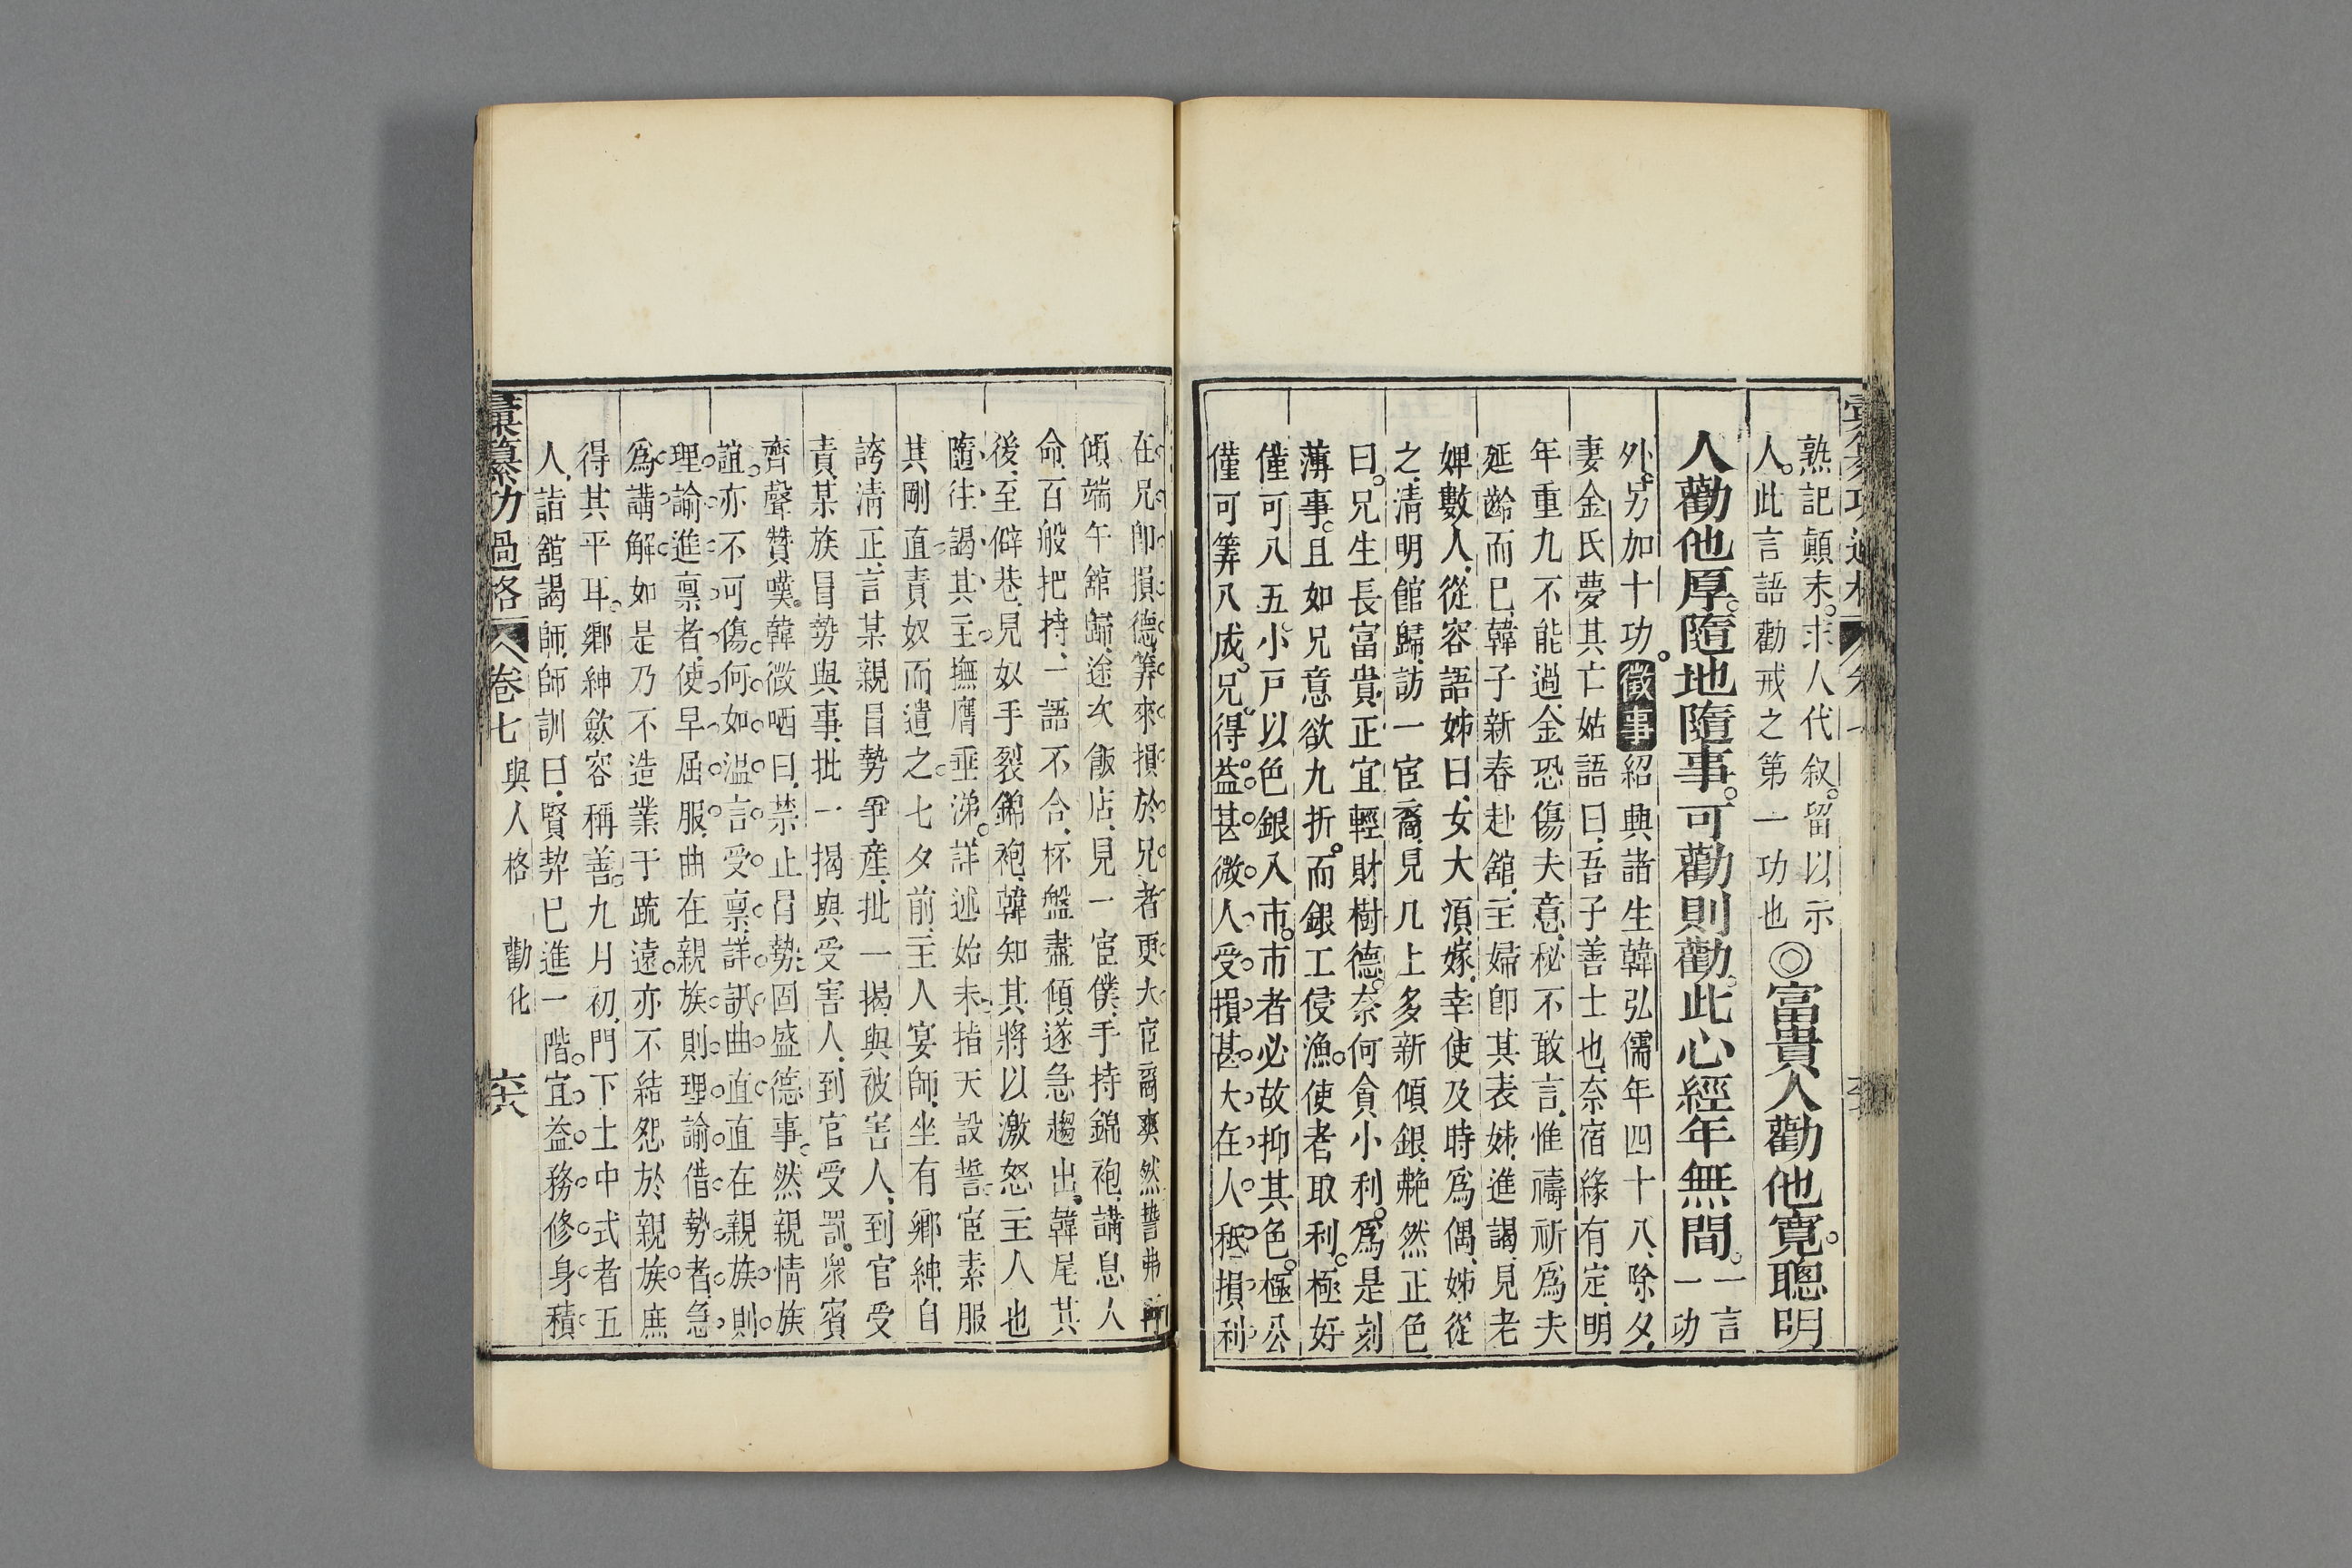 熟記顛末。求人代叙。留以示
人。此言語勸戒之第一功也
◎富貴人勸他寛。聰明
人勸他厚。隨地隨事。可勸則勸。此心經年無間。
一言
一功
外。另加十功。徵事紹興諸生韓弘儒年四十八、除夕、
妻金氏夢其亡姑語曰、吾子善士也、奈宿緣有定、明
年重九不能過、金恐傷夫意、秘不敢言、惟禱祈爲夫
延齡而巳、韓子新春赴舘、主婦卽其表姊、進謁、見老
婢數人、從容語姊曰、女大須嫁、幸使及時爲偶、姊從
之、淸明館歸、訪一宦裔、見几上多新傾銀、艴然正色
曰。兄生長富貴、正宜輕財樹德。奈何貪小利。爲是刻
薄事。且如兄意欲九折。而銀工侵漁。使者取利。極好
僅可八五。小戸以色銀入市。市者必故抑其色。極公
僅可筭八成。兄得益甚微。人受損甚大。在人秪損利
在兄卽損德。筭來損於兄者更大。宦裔爽然誓弗
傾、端午舘歸、途次飯店、見一宦僕、手持錦袍、講息人
命、百般把持、一語不合、杯盤盡傾、遂急趨出。韓尾其
後、至僻巷、見奴手裂錦袍、韓知其將以激怒主人也
隨往謁其主、撫膺垂涕。詳述始末、指天設誓、宦素服
其剛直、責奴而遣之。七夕前、主人宴師、坐有鄕紳、自
誇淸正、言某親冒勢爭產、批一揭、與被害人、到官受
責、某族冒勢與事、批一揭與受害人、到官受罰。衆賓
齊聲贊嘆。韓微哂曰、禁止冒勢、固盛德事。然親情族
誼。亦不可傷。何如溫言受禀、詳訊曲直、直在親族、則
理諭進禀者、使早屈服、曲在親族、則理諭借勢者、急
爲講解、如是乃不造業于疏遠。亦不結怨於親族。庶
得其平耳。鄕紳歛容稱善。九月初、門下士中式者五
人、詣舘謁師、師訓曰、賢契巳進一階。宜益務修身積
彙纂功過格
卷七
與人格
勸化